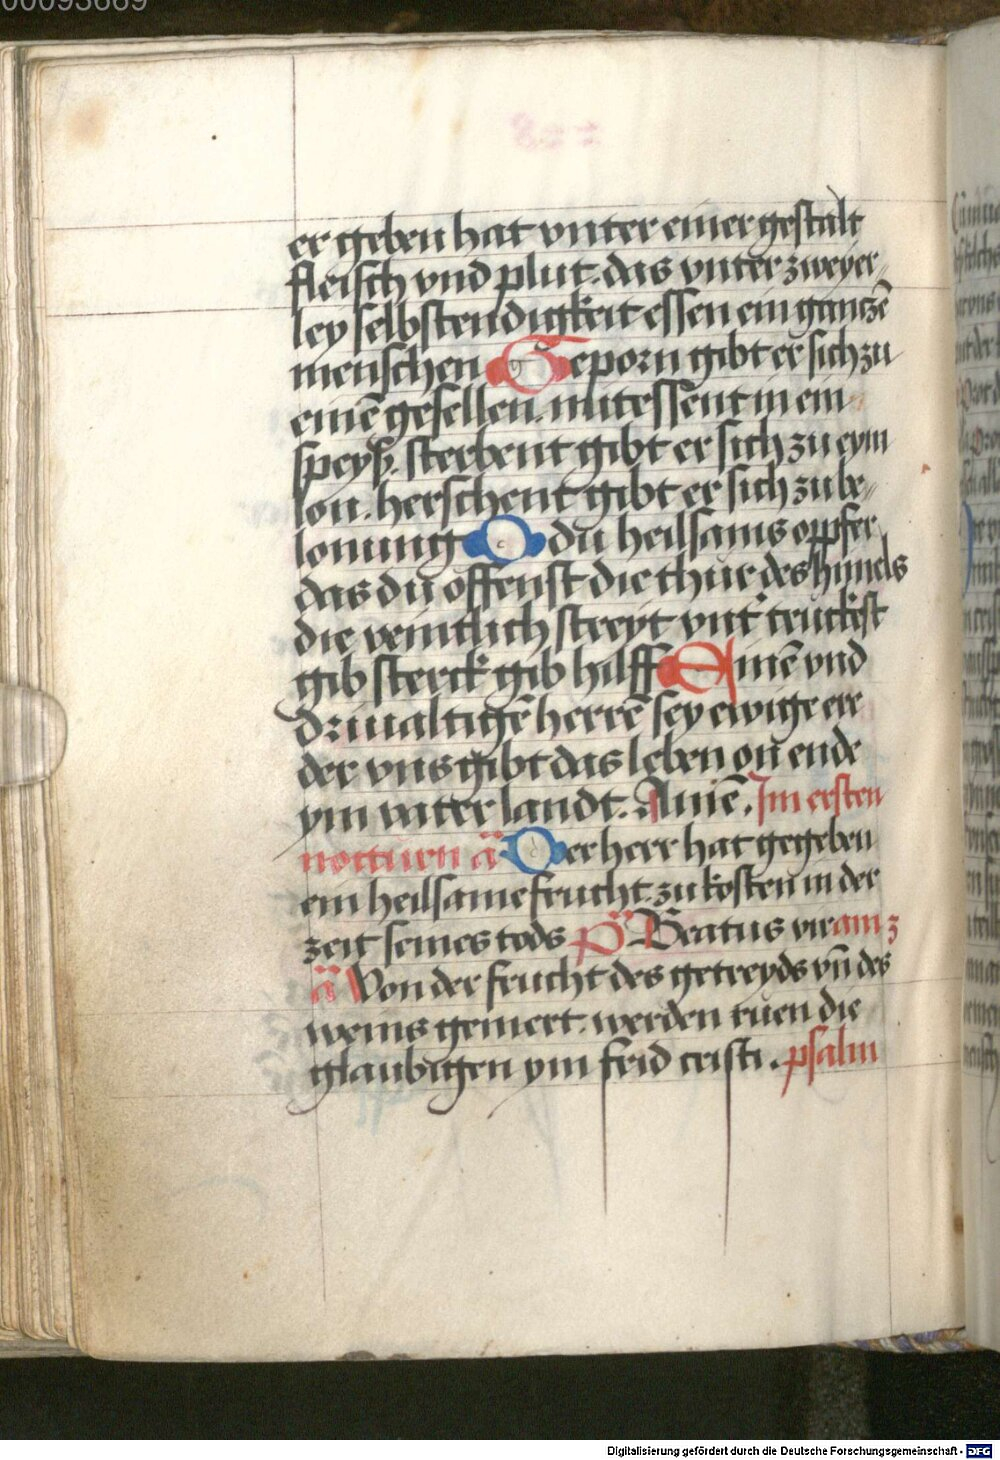 00093669
er geben hat vnter einer gestalt
fleisch vnd plut. das vnter zweyer„
ley selbstendigkeit essen ein gantzē
menschen Geporn gibt er sich zu
einē gesellen. mitessent in ein
speyß. sterbent gibt er sich zu eym
lon. herschent gibt er sich zu be„
lonung O du heilsams oppfer
das du offenst die thur des himels
die veintlich streyt vnt' truckest
gib sterck gib hilff Einē vnd
driualtigē herrē sey ewige ere
der vns gibt das leben on ende
ym vater landt. Amē. Im ersten
notturn ä Der herr hat gegeben
ein heilsame frucht zu kosten in der
zeit seines tods P̈ Beatus vir am 3
ä Von der frucht des getreyds vn̄ des
weins gemert. werden ruen die
glaubigen ym frid cristi. psalm
Digitalisierung gefördert durch die Deutsche Forschungsgemeinschaft - DFG